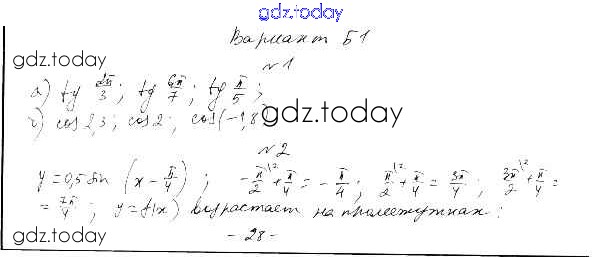 gdz.today
Вариант Б1
gdz.today
№1
а) tg 2π/3; tg 6π/7; tg π/5;
г) cos 2,3; cos 2; cos(-1,8)
gdz.today
№2
y = 0,5 sin (x - π/4); -π/2 + π/4 = -π/4; π/2 + π/4 = 3π/4; 3π/2 + π/4 =
= 7π/4; y = f(x) возрастает на промежутках:
gdz.today
- 28 -